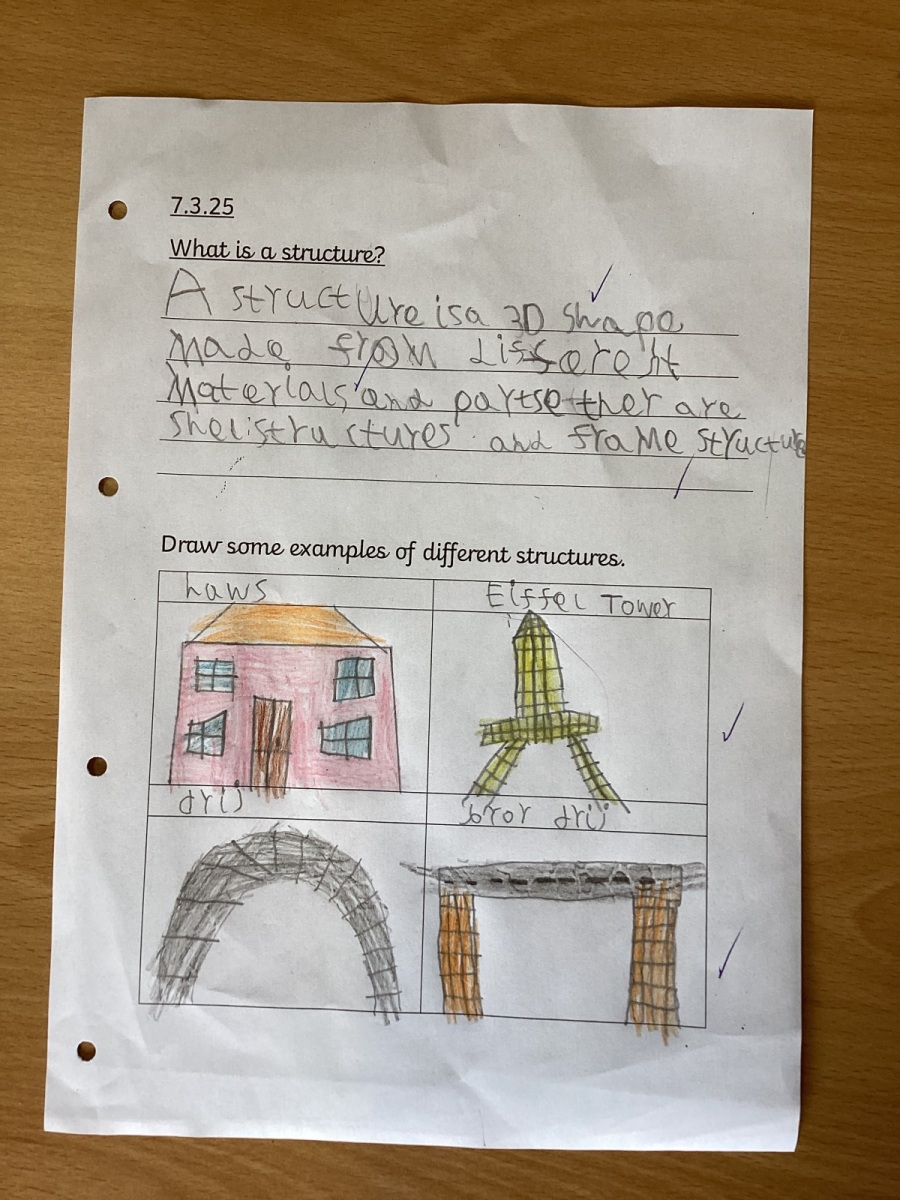 7.3.25
What is a structure?
A structure is a 3D Shape
made from different
materials and partse ther are
shelistructures and frame structure
Draw some examples of different structures.
haws
Eiffel Tower
drij
bror drij